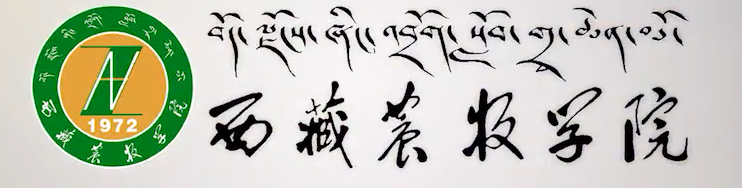 བོད་ལྗོངས་ཞིང་འབྲོག་སློབ་གྲྭ་ཆེན་མོ།
西藏农牧学院
1972
西藏农牧学院